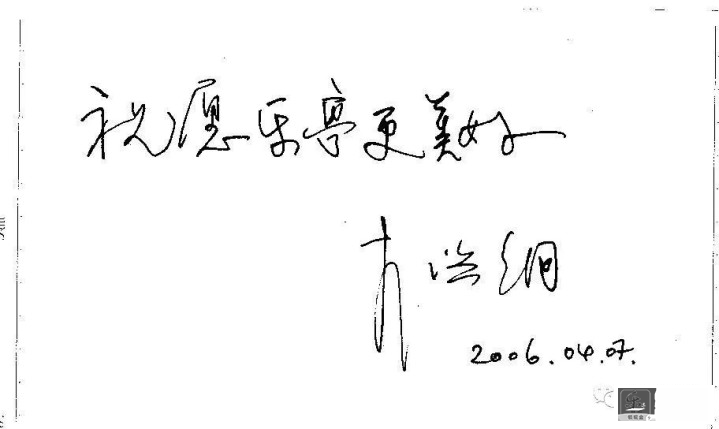 祝愿乐亭更美好
2006.04.07.